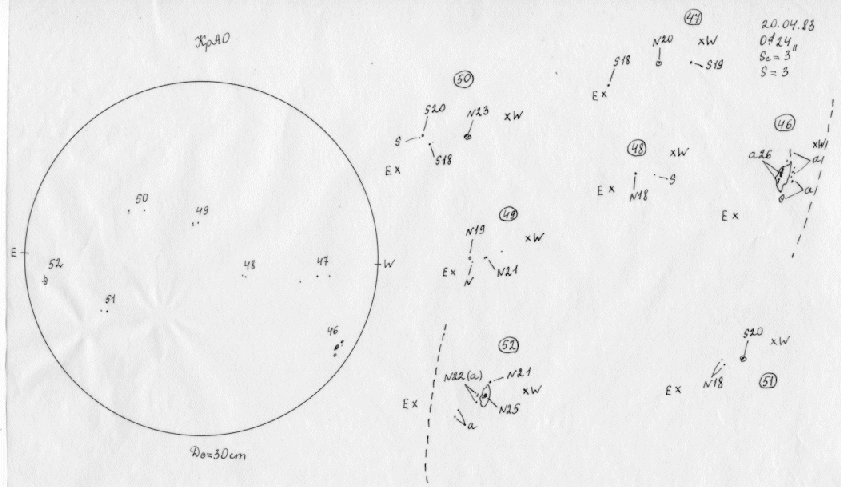 КрАО
E
W
50
49
52
48
47
51
46
D₀=30cm
50
S20
N23
xW
S
S18
Ex
47
N20
xW
S18
S19
Ex
20.04.23
Sc = 3"
S = 3
46
xW
a26
a
a
Ex
48
xW
S
Ex
N18
49
N19
xW
Ex
N
N21
52
N22(a)
N21
xW
Ex
N25
a
S20
xW
Ex
N18
51